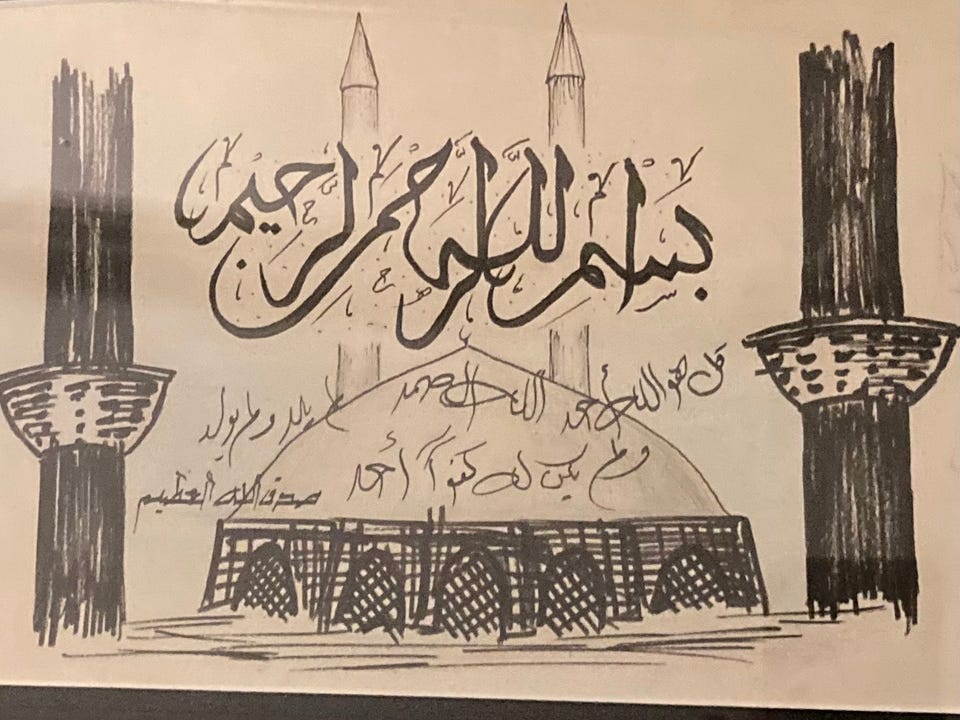 بسم الله الرحمن الرحيم
قل هو الله أحد الله الصمد لم يلد ولم يولد
ولم يكن له كفواً أحد
صدق الله العظيم